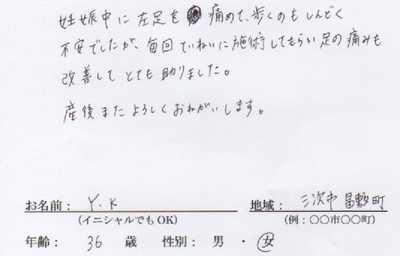 妊娠中に左足を痛めて、歩くのもしんどく
不安でしたが、毎回ていねいに施術してもらい足の痛みも
改善してとても助りました。
産後またよろしくおねがいします。
お名前： Y.K 地域： 三次市畠敷町
(イニシャルでもOK) (例：〇〇市〇〇町)
年齢： 36 歳 性別： 男 ・ 女